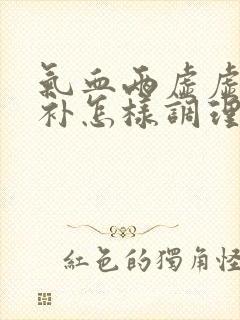 氣血兩虛虛
补怎樣調理
紅色的獨角怪